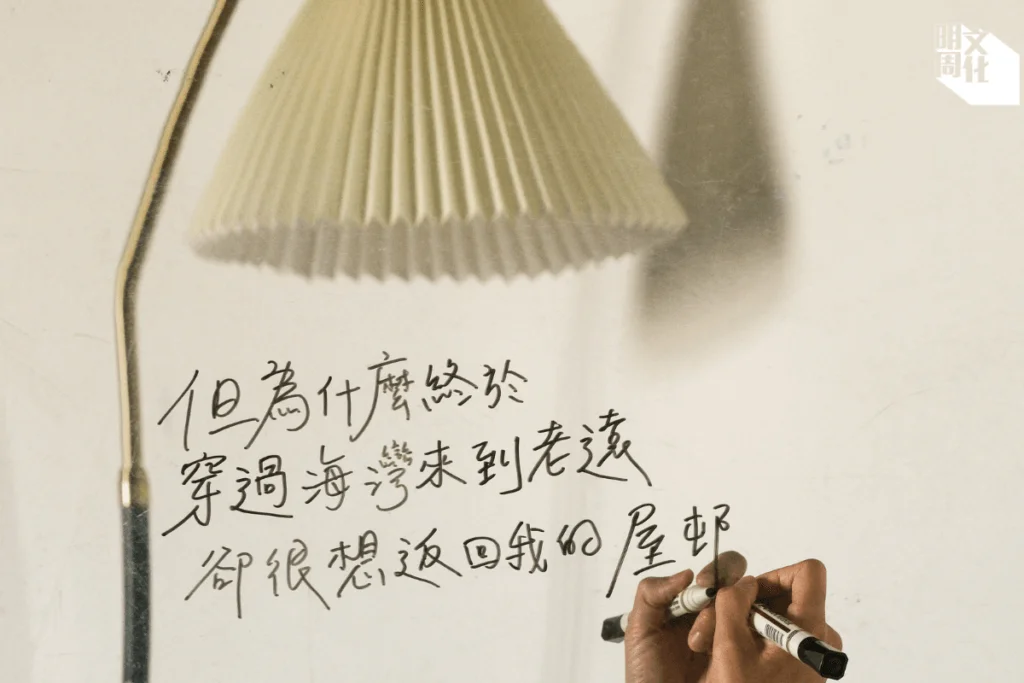 明周文化
但為什麼終於
穿過海灣來到老遠
卻很想返回我的屋邨